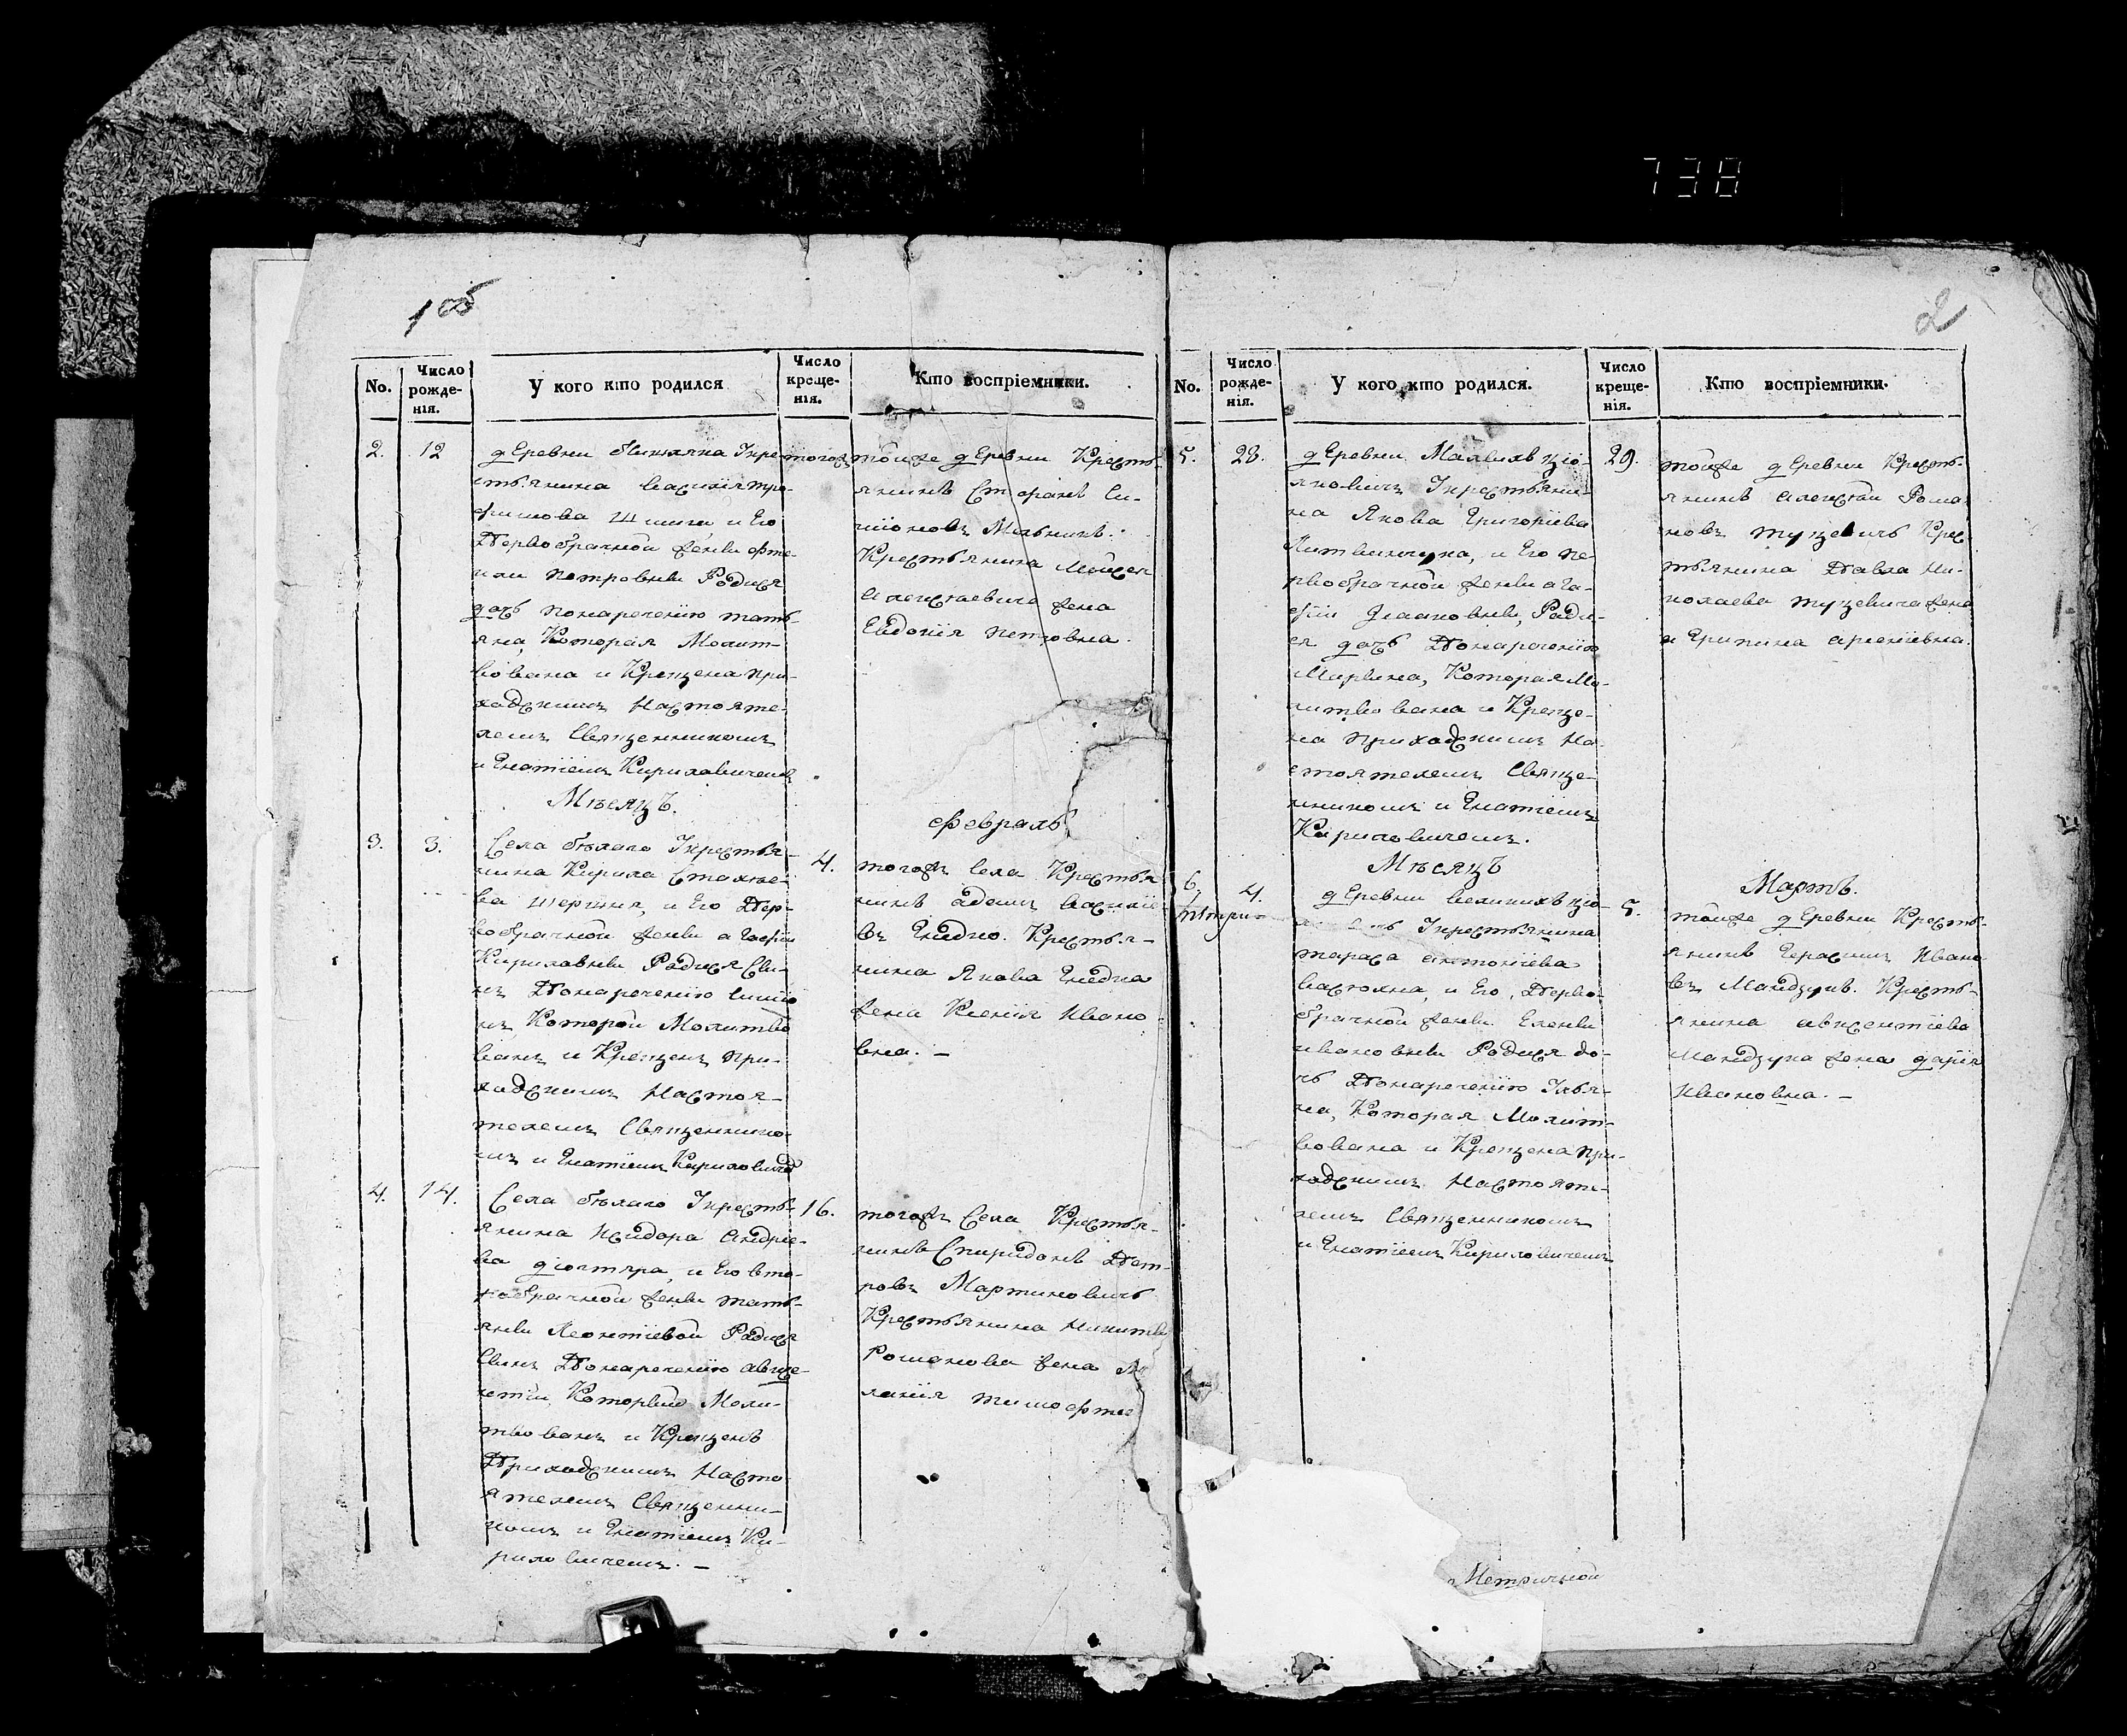 738
1 об
2
No.
Число рожде- нія.
У кого кто родился
Число креще- нія.
Кто воспріемники.
2.
12
деревни
стьянина Василія Тро-
фимова и Его
Первобрачной жены
Петровны Родися
дочь Понаречению Тать-
яна, Которая Молит-
вована и Крещена При-
ходским Настояте-
лем Священником
Игнатіем Кириловичем
тогож
тойже деревни Кресть-
янинъ Стефанъ Си-
мionовъ Мельникъ.
Крестьянина Мойсея
Алексеевича жена
Евдокія Петровна.
Мѣсяцъ.
Февраль
3.
3.
Села Бѣлаго Укрестья-
нина Кирила
и Его Пер-
вобрачной жены Агафіи
Кириловны Родися Сы-
нъ Понаречению Симіо
нъ, Которой Молитво
ванъ и Крещенъ При-
ходскимъ Настоя-
телемъ Священнико-
мъ Игнатіем Кирилович
4.
тогожъ Села Крестья
нинъ Адамъ Василіе
въ Гнедко. Крестья-
нина Якова Гнедка
жена Ксенія Ивано
вна. —
4.
14.
Села Бѣлаго Укресть-
янина Исидора Андрее-
ва Дюгтяра, и Его вто-
робрачной жены Тать-
яны Леонтіевой Родися
Сынъ Понаречению Авксе-
нтій, Который Моли-
твованъ и Крещенъ
Приходскимъ Насто
ятелемъ Священни-
комъ Игнатіемъ Ки-
риловичемъ. —
16.
тогожъ Села Крестья-
нинъ Спиридонъ Пет-
ровъ Мартиновичъ
Крестьянина Никиты
Романова жена Ме
ланія
No.
Число рожде- нія.
У кого кто родился.
Число креще- нія.
Кто воспріемники.
5.
28.
деревни Малыхъ Цю-
Укрестьяни-
на Якова Григоріева
Литвинчука, и Его Пе-
рвобрачной жены Ага-
фіи Роди-
ся дочь Понаречению
Марина, Которая Мо-
литвована и Креще-
на Приходскимъ На-
стоятелемъ Священ-
никомъ Игнатіемъ
Кириловичемъ.
29.
тойже деревни Кресть-
янинъ Алексѣй Рома
новъ Крес
тьянина Павла Ни-
колаева жена
Агрипина
Мѣсяцъ
Мартъ.
6.
4.
деревни Великихъ Цю-
Укрестьянина
Тараса Антоніева
и Его, Перво-
брачной жены Елены
Ивановны Родися до-
чь Понаречению Улья-
на, Которая Молит-
вована и Крещена При-
ходскимъ Настояте-
лемъ Священникомъ
Игнатіемъ Кириловичемъ
5.
тойже деревни Кресть-
янинъ Герасимъ Ивано
въ Майдзукъ. Кресть-
янина Авксентіева
Майдзука жена Дарія
Ивановна. —
Метричной